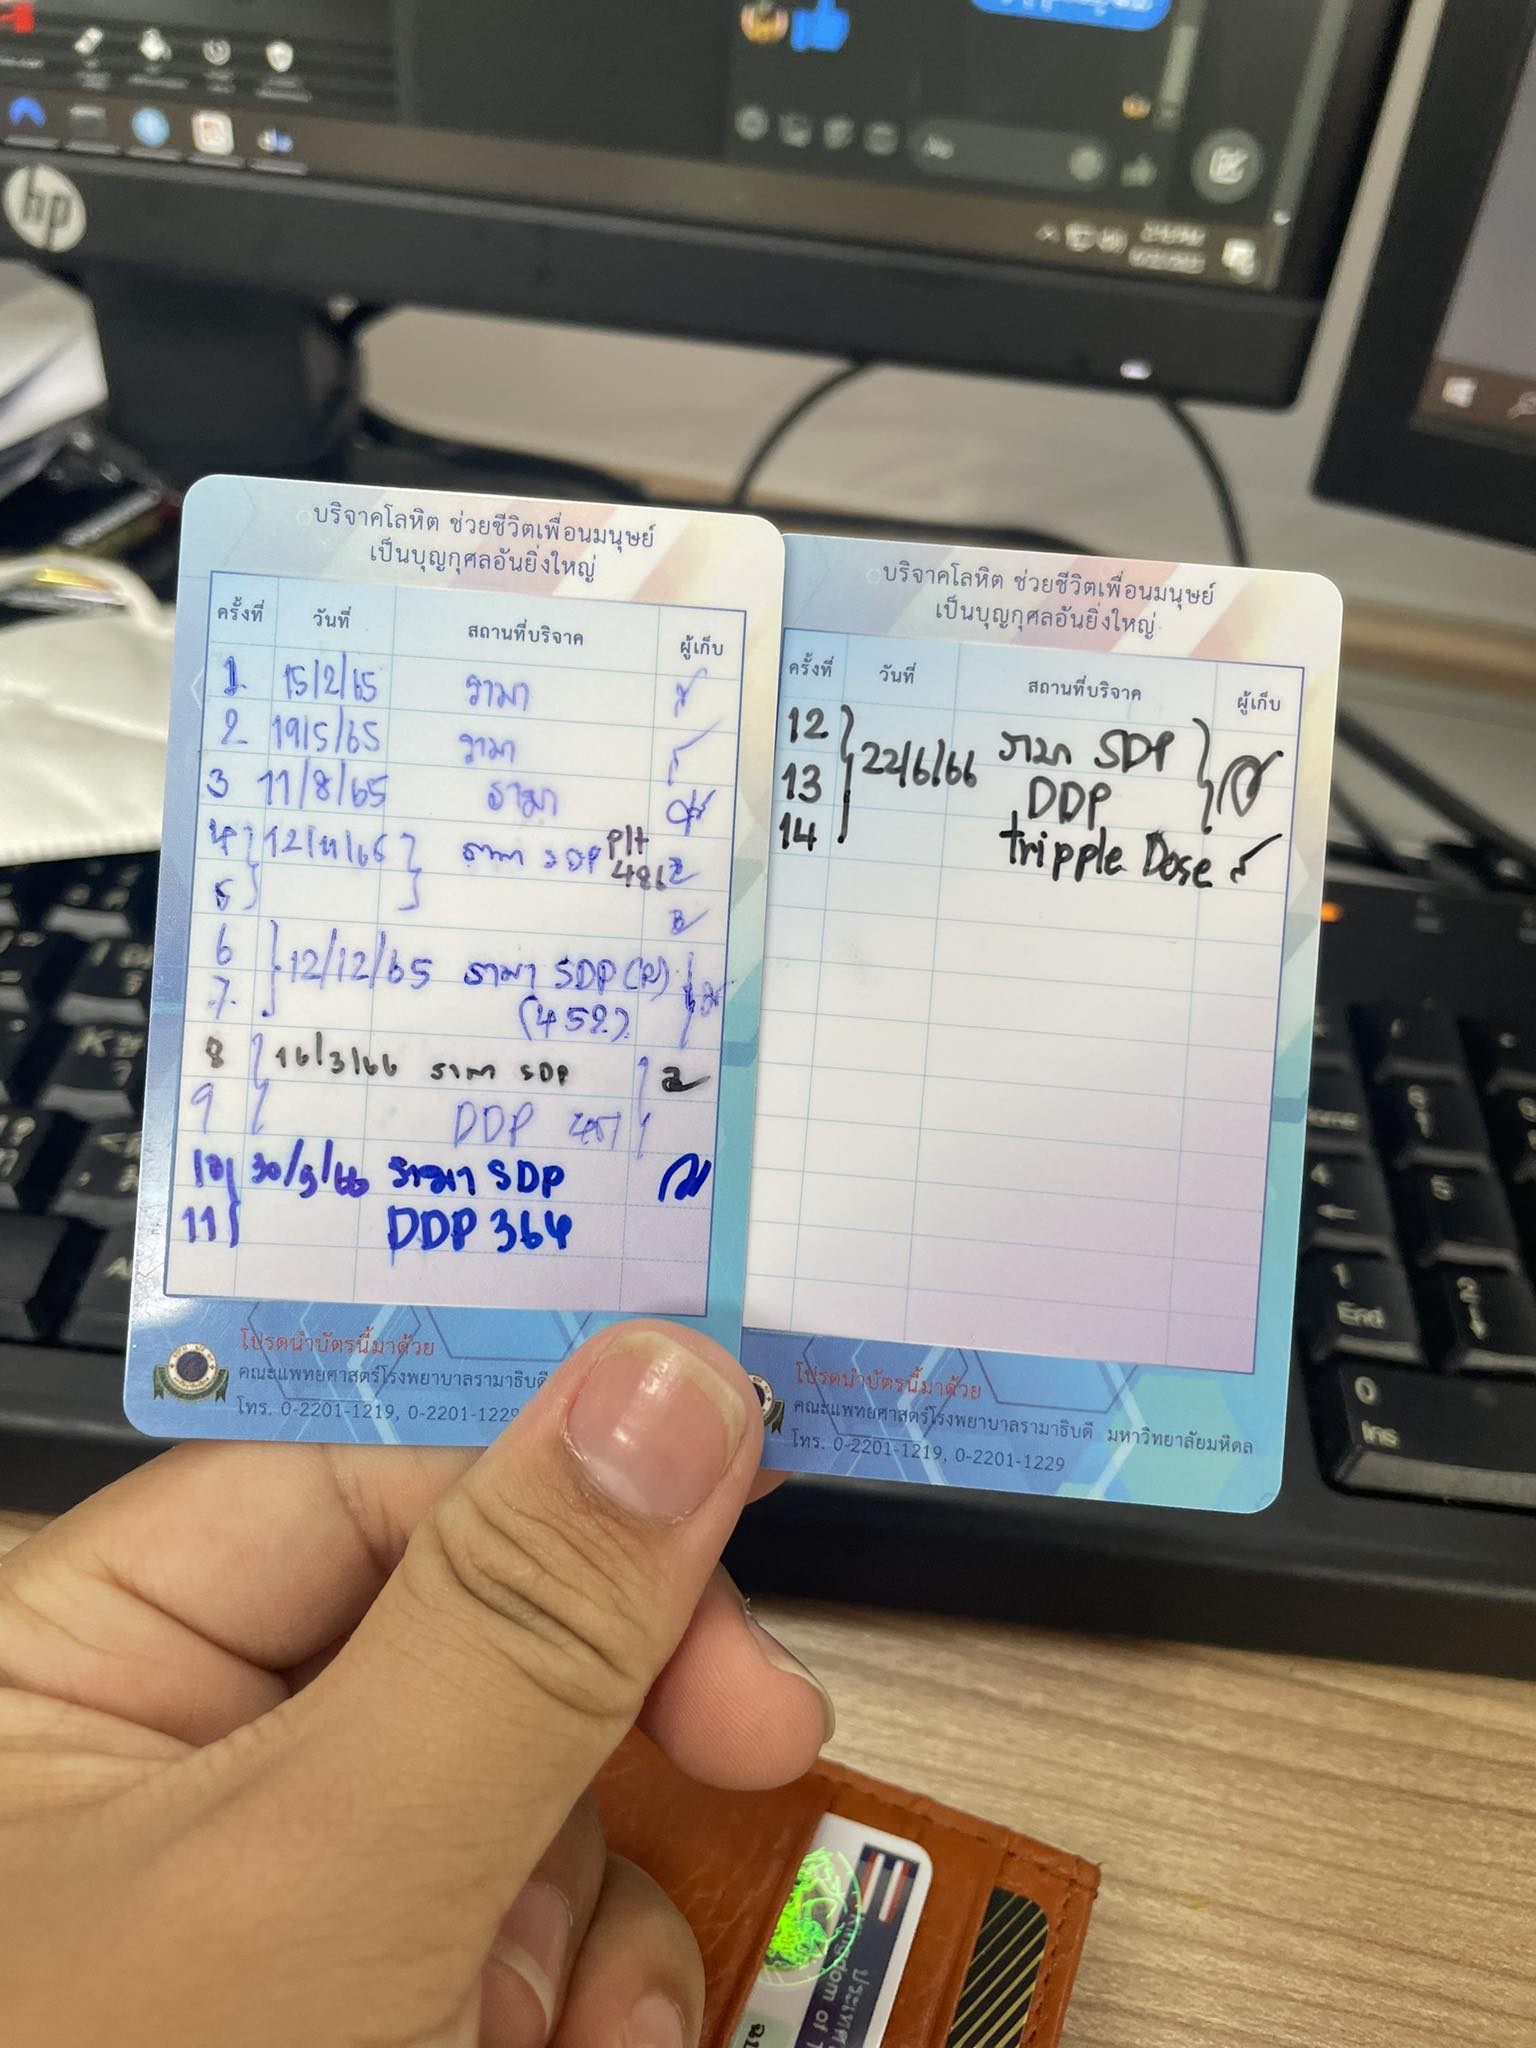 hp
บริจาคโลหิต ช่วยชีวิตเพื่อนมนุษย์
เป็นบุญกุศลอันยิ่งใหญ่
ครั้งที่ วันที่ สถานที่บริจาค ผู้เก็บ
1 15/2/65 รามา
2 19/5/65 รามา
3 11/8/65 รามา
4 12/11/65 รามา SDP plt
5
6 12/12/65 รามา SDP
7 (452)
8 16/3/66 รามา SDP
9 DDP 451
10 30/5/66 รามา SDP
11 DDP 364
โปรดนำบัตรนี้มาด้วย
คณะแพทยศาสตร์โรงพยาบาลรามาธิบดี
โทร. 0-2201-1219, 0-2201-1229
บริจาคโลหิต ช่วยชีวิตเพื่อนมนุษย์
เป็นบุญกุศลอันยิ่งใหญ่
ครั้งที่ วันที่ สถานที่บริจาค ผู้เก็บ
12 22/6/66 รามา SDP
13 DDP
14 tripple Dose
โปรดนำบัตรนี้มาด้วย
คณะแพทยศาสตร์โรงพยาบาลรามาธิบดี มหาวิทยาลัยมหิดล
โทร. 0-2201-1219, 0-2201-1229
1
End
2
5
0
Ins